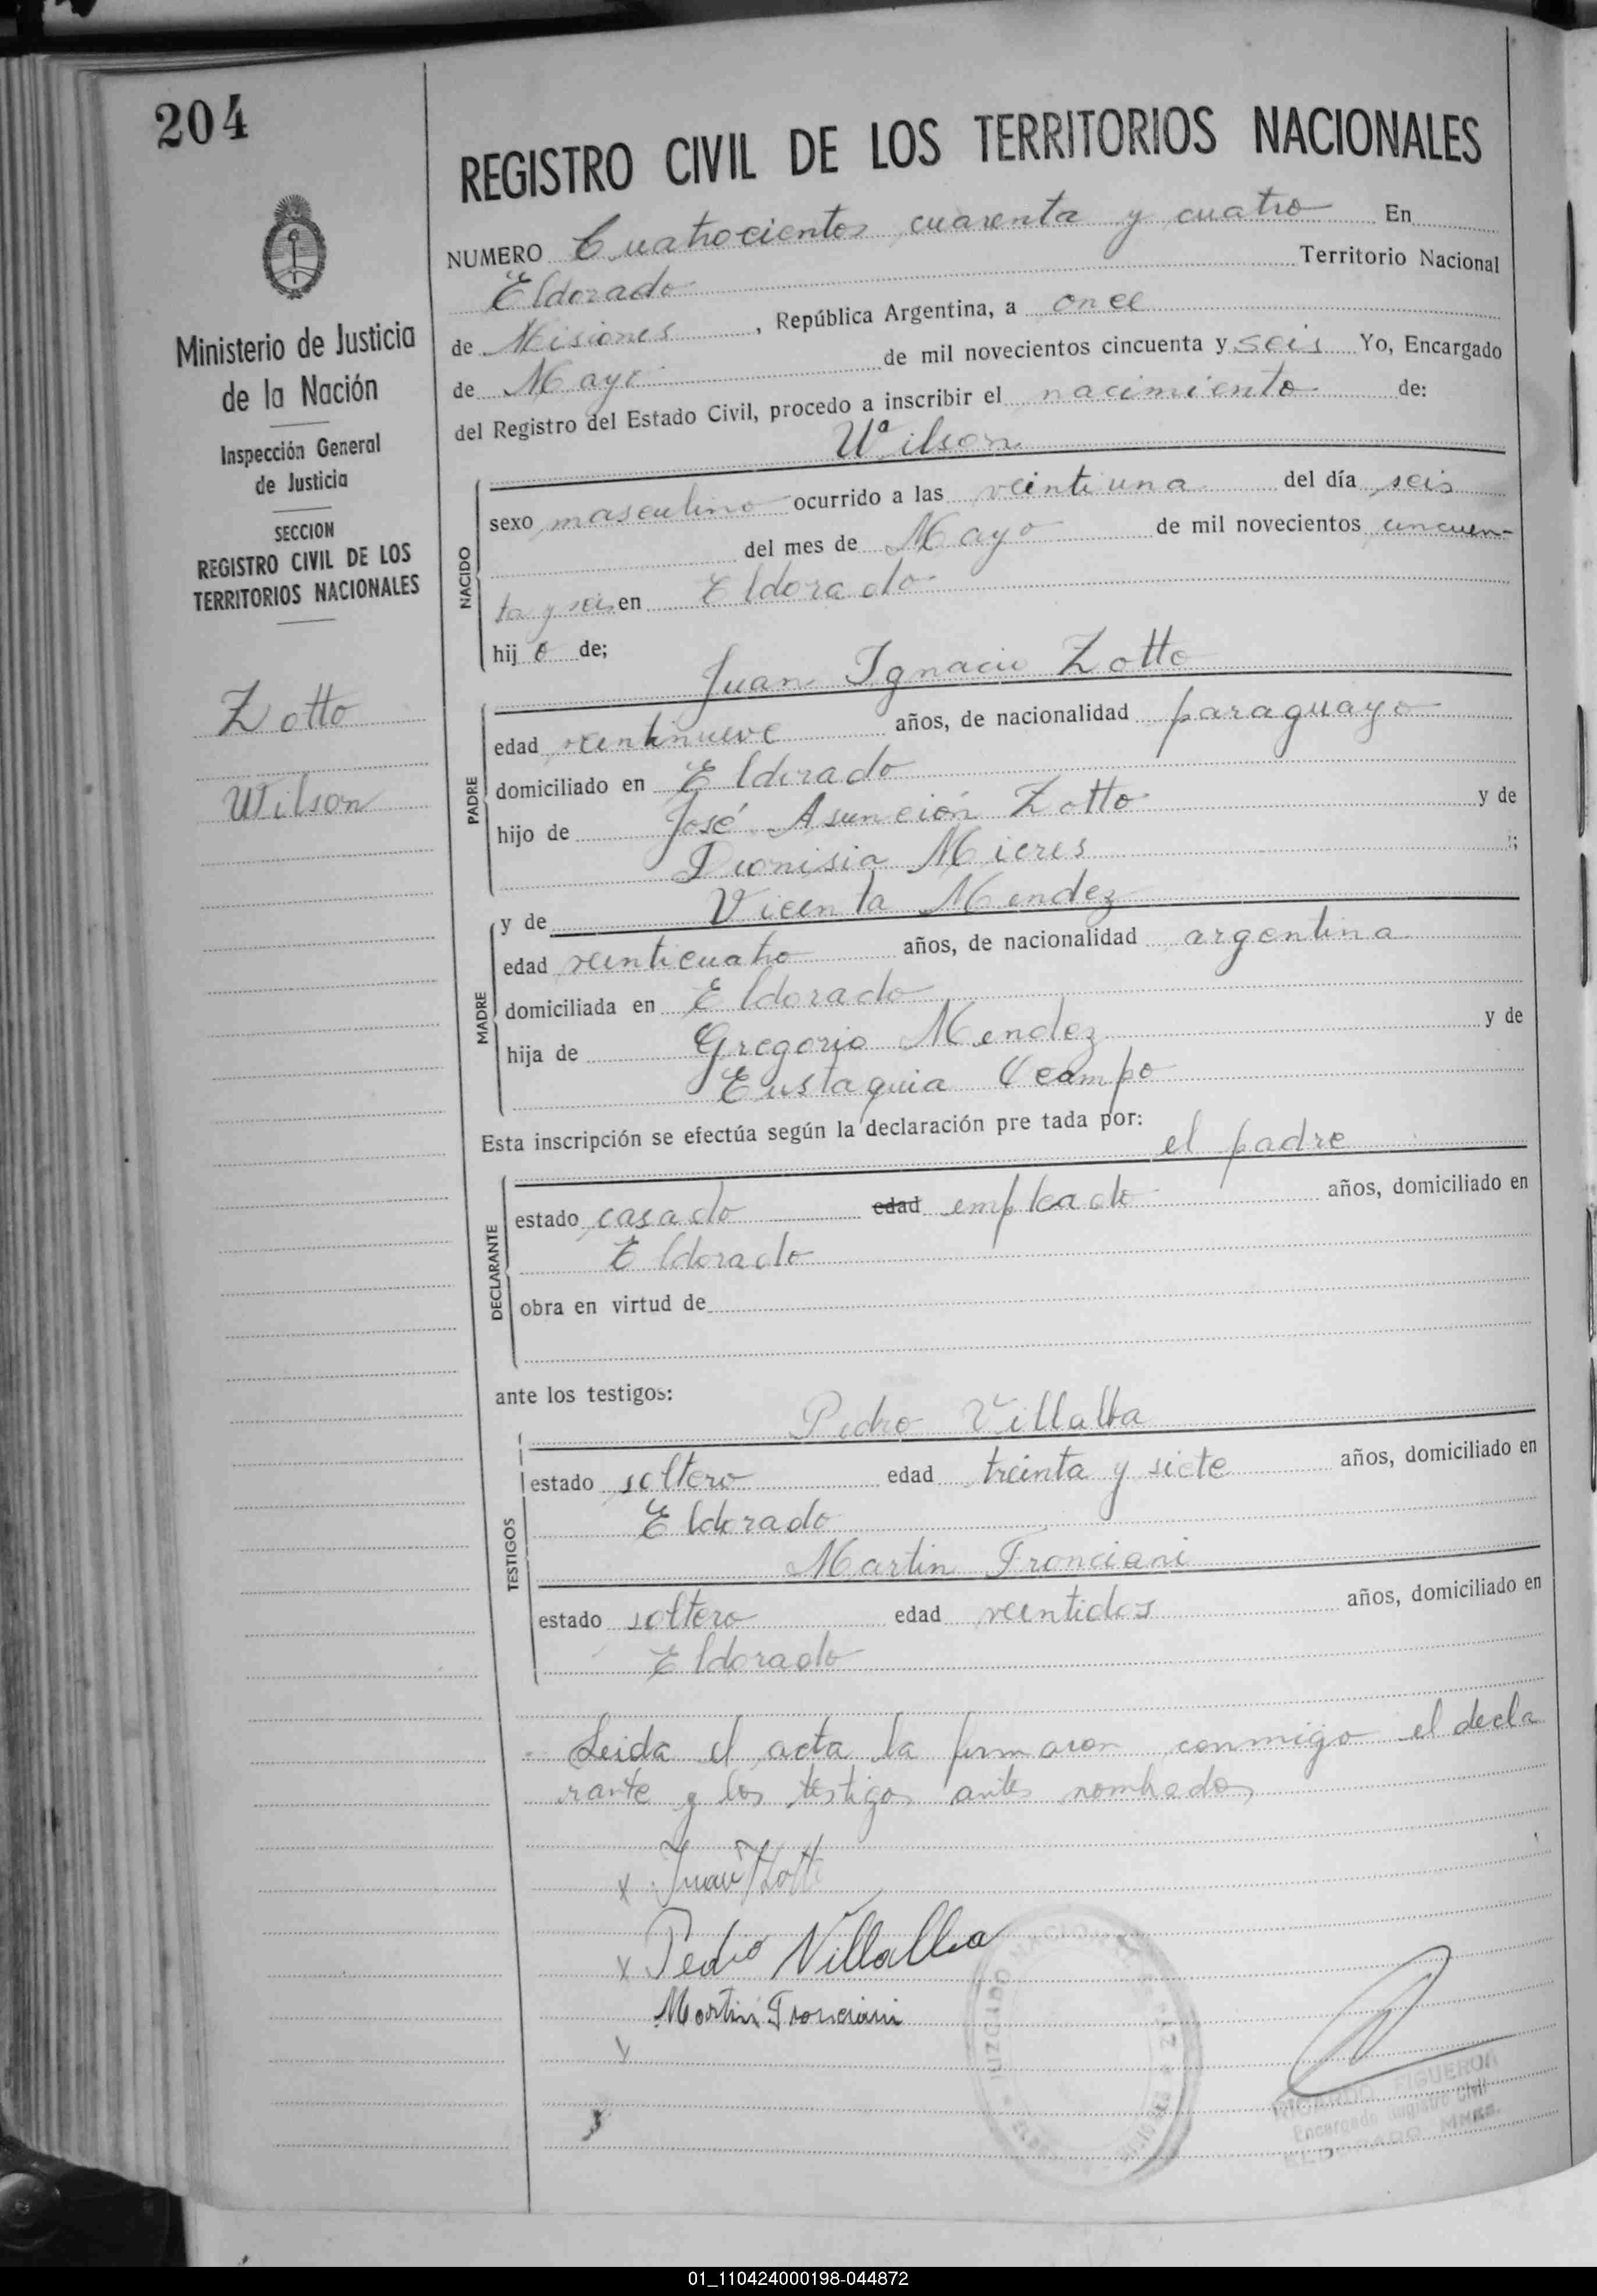 204
Ministerio de Justicia
de la Nación
Inspección General
de Justicia
SECCION
REGISTRO CIVIL DE LOS
TERRITORIOS NACIONALES
Zotto
Wilson
REGISTRO CIVIL DE LOS TERRITORIOS NACIONALES
NUMERO Cuatrocientos cuarenta y cuatro En
Eldorado Territorio Nacional
de Misiones, República Argentina, a once
de Mayo de mil novecientos cincuenta y seis Yo, Encargado
del Registro del Estado Civil, procedo a inscribir el nacimiento de:
Wilson
NACIDO
sexo masculino ocurrido a las veintiuna del día seis
del mes de Mayo de mil novecientos cincuen-
ta y seis en Eldorado
hijo de;
Juan Ignacio Zotto
PADRE
edad veintinueve años, de nacionalidad paraguayo
domiciliado en Eldorado
hijo de José Asunción Zotto y de
Dionisia Mieres ;
MADRE
y de Vicenta Mendez
edad veinticuatro años, de nacionalidad argentina
domiciliada en Eldorado
hija de Gregorio Mendez y de
Eustaquia Ocampo
Esta inscripción se efectúa según la declaración pre tada por:
el padre
DECLARANTE
estado casado edad empleado años, domiciliado en
Eldorado
obra en virtud de
ante los testigos:
Pedro Villalba
TESTIGOS
estado soltero edad treinta y siete años, domiciliado en
Eldorado
Martin Fronciani
estado soltero edad veintidos años, domiciliado en
Eldorado
Leida el acta la firmaron conmigo el decla
rante y los testigos antes nombrados
x Juan Zotto
x Pedro Villalba
Martin Fronciani
JUZGADO NACIONAL DE PAZ
RICARDO FIGUEROA
Encargado Registro Civil
ELDORADO Mnes.
01_110424000198-044872